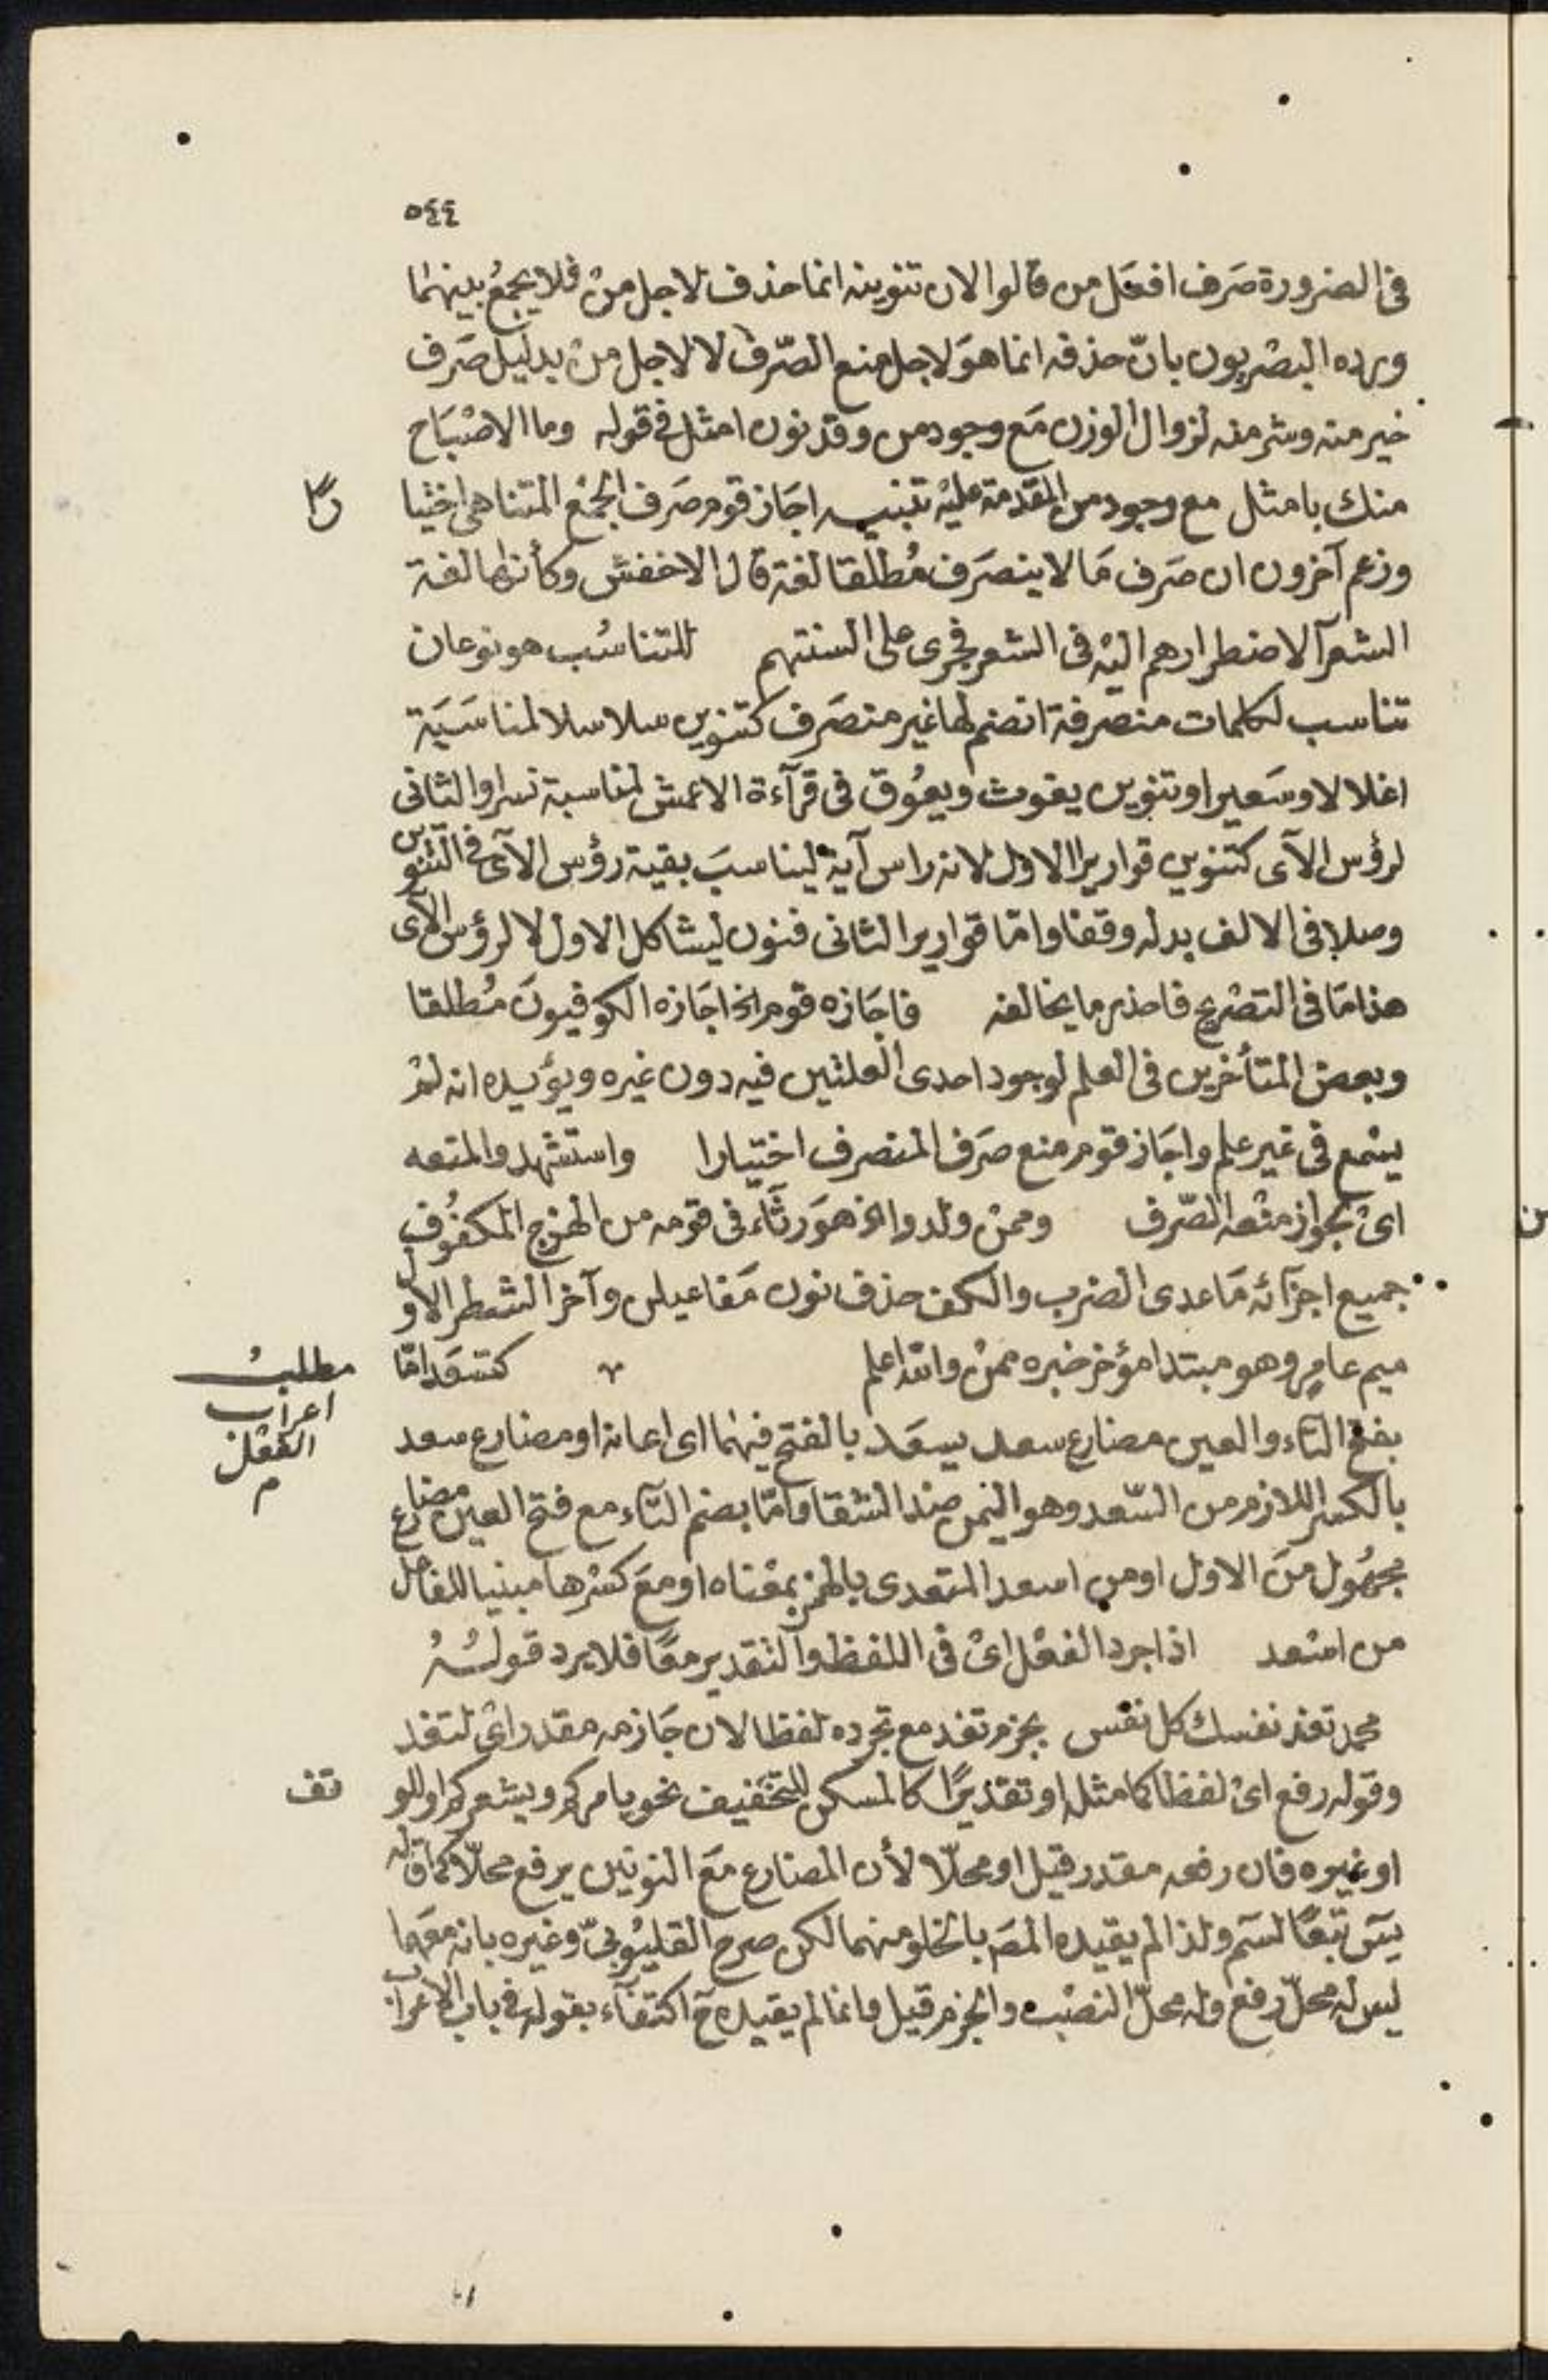 ٥٤٤
فى الضرورة صَرف افعَل من قالوا لان تنوينه انما حذف لاجل منْ فلا يجمعُ بينهما
ورده البصْريون بانّ حذفه انما هوَ لاجل منع الصّرف لا لاجل منْ بدليل صَرف
خير منه وشر منه لزوال الوزن مَع وجود من وقد نون امثل فى قوله وما الاصْبَاح
منك بامثل مع وجود من المقدمة عليْه تنبيه اجَاز قوم صَرف الجمْع المتناهى اختيا
رًا
وزعم آخرون ان صَرف مَا لا ينصَرف مُطلقا لغة قال الاخفش وكأنها لغة
الشعرآ لاضطرارهم اليْه فى الشعر فجرى على السنتهم للتناسُب هو نوعان
تناسب لكلمات منصرفة انضم لها غير منصَرف كتنوين سلاسلا لمناسَبَة
اغلالا وسَعيرا وتنوين يغوث ويعُوق فى قرآءة الاعمش لمناسبة نسرا والثانى
لرؤس الآى كتنوين قواريرا الاول لانه راس آية ليناسبَ بقية رؤس الآى فى التنوين
وصلا فى الالف بدله وقفا وامّا قواريرا الثانى فنون ليشاكل الاول لا لرؤس الآى
هذا مَا فى التصْريح فاحذر ما يخالفه فاجَازه قوم الخ اجَازه الكوفيونَ مُطلقا
وبعض المتأخرين فى العلم لوجود احدى العلتين فيه دون غيره ويؤيده انه لمْ
يسْمع فى غير علم واجَاز قوم منع صَرف المنصرف اختيارا واستشهدوا لمنعه
اىْ بجواز منْعه الصّرف وممنْ ولدوا الخ هوَ رثآء فى قومه من الهزج المكفُوف
جميع اجزآئه مَا عدى الضرب والكف حذف نون مَفاعيلن وآخر الشطر الاول
ميم عامٍر وهو مبتدا مؤخر خبره ممنْ والله اعلم كتسعَد امّا
مطلبُ
اعراب
الفعْل
م
بفتح التاء والعين مضارع سعد يسعَد بالفتح فيهُما اى اعانه او مضارع سعد
بالكسر اللازم من السّعد وهو اليمن ضد الشقا وامّا بضم التآء مع فتح العين مضارع
مجهُول منَ الاول او من اسعد المتعدى بالهمز بمعْناه او معَ كسْرها مبنيا للفاعل
من اسْعد اذا جرد الفعْل اىْ فى اللفظ والتقدير معًا فلا يرد قولُهُ
محمد تفد نفسك كل نفس بجزم تفد مع تجرده لفظا لان جَازمه مقدر اىْ لتفد
وقوله رفع اىْ لفظا كما مثله او تقديرًا كالمسكن للتخفيف نحو يامركم ويشعركم او للو
تف
او غيره فان رفعه مقدر قيل او محلّا لأن المضارع مَع النونين يرفع محلّا كما قاله
يسَ تبعًا لسَم ولذا لم يقيده المصَ بالخلو منهما لكن صرح القليُوبىّ وغيره بانه معَهما
ليسَ له محلّ رفع وله محلّ النصْب والجزم قيل وانما لم يقيده حَ اكتفآء بقوله فى باب الاعراب